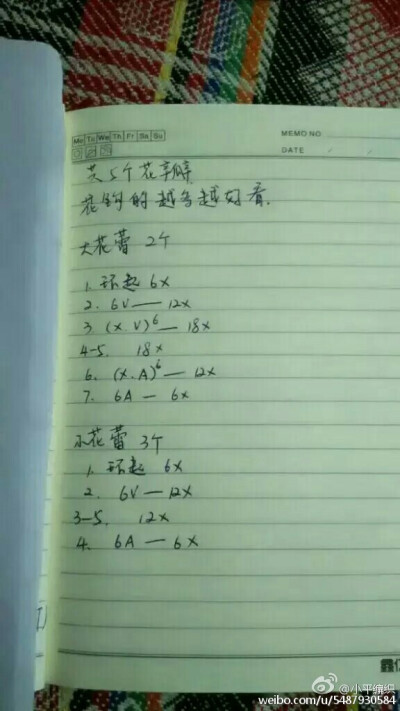 Mo Tu We Th Fr Sa Su
MEMO NO.
DATE / /
共5个花瓣
花钩的越多越好看.
大花蕾 2个
1. 环起 6x
2. 6V — 12x
3. (x.V)⁶ — 18x
4-5. 18x
6. (x.A)⁶ — 12x
7. 6A — 6x
小花蕾 3个
1. 环起 6x
2. 6V — 12x
3-5. 12x
4. 6A — 6x
@小平编织
weibo.com/u/5487930584